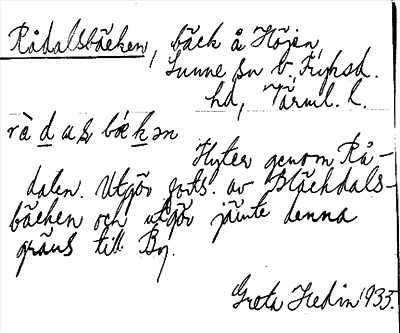 Rådalsbäcken, bäck å Höjen,
Sunne sn V. Fryksd.
hd, Värml. l.
rå̀das bækən
Flyter genom Rå-
dalen. Utgör forts. av Bläckdals-
bäcken och utgör jämte denna
gräns till By.
Greta Hedin 1935.